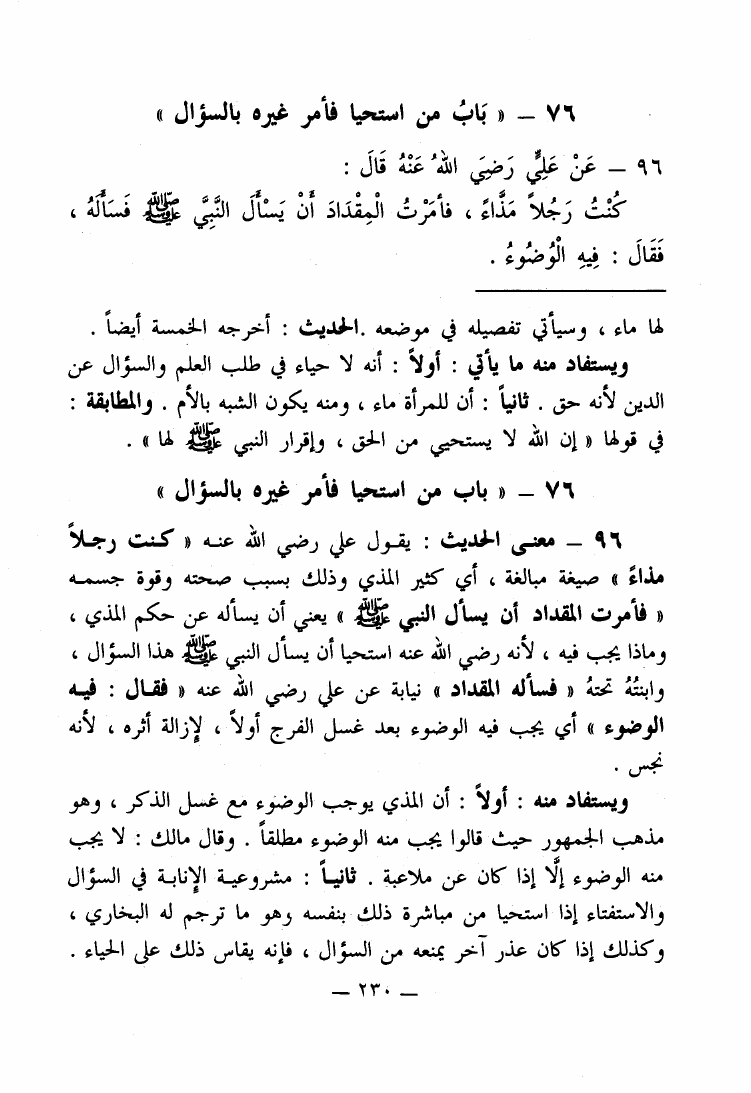 ٧٦ – « بَابُ من استحيا فأمر غيره بالسؤال »
٩٦ – عَنْ عَلِيٍّ رَضِيَ اللهُ عَنْهُ قَالَ :
كُنْتُ رَجُلاً مَذَّاءً ، فأمَرْتُ الْمِقْدَادَ أَنْ يَسْأَلَ النَّبِيَّ ﷺ فَسَأَلَهُ ،
فَقَالَ : فِيهِ الْوُضُوءُ .
لها ماء ، وسيأتي تفصيله في موضعه .الحديث : أخرجه الخمسة أيضاً .
ويستفاد منه ما يأتي : أولاً : أنه لا حياء في طلب العلم والسؤال عن
الدين لأنه حق . ثانياً : أن للمرأة ماء ، ومنه يكون الشبه بالأم . والمطابقة :
في قولها « إن الله لا يستحيي من الحق ، وإقرار النبي ﷺ لها » .
٧٦ – « باب من استحيا فأمر غيره بالسؤال »
٩٦ – معنى الحديث : يقول علي رضي الله عنه « كنت رجلاً
مذاءً » صيغة مبالغة ، أي كثير المذي وذلك بسبب صحته وقوة جسمه
« فأمرت المقداد أن يسأل النبي ﷺ » يعني أن يسأله عن حكم المذي ،
وماذا يجب فيه ، لأنه رضي الله عنه استحيا أن يسأل النبي ﷺ هذا السؤال ،
وابنتُهُ تحتهُ « فسأله المقداد » نيابة عن علي رضي الله عنه « فقال : فيه
الوضوء » أي يجب فيه الوضوء بعد غسل الفرج أولاً ، لإزالة أثره ، لأنه
نجس .
ويستفاد منه : أولاً : أن المذي يوجب الوضوء مع غسل الذكر ، وهو
مذهب الجمهور حيث قالوا يجب منه الوضوء مطلقاً . وقال مالك : لا يجب
منه الوضوء إلَّا إذا كان عن ملاعبة . ثانياً : مشروعية الإنابة في السؤال
والاستفتاء إذا استحيا من مباشرة ذلك بنفسه وهو ما ترجم له البخاري ،
وكذلك إذا كان عذر آخر يمنعه من السؤال ، فإنه يقاس ذلك على الحياء .
– ٢٣٠ –